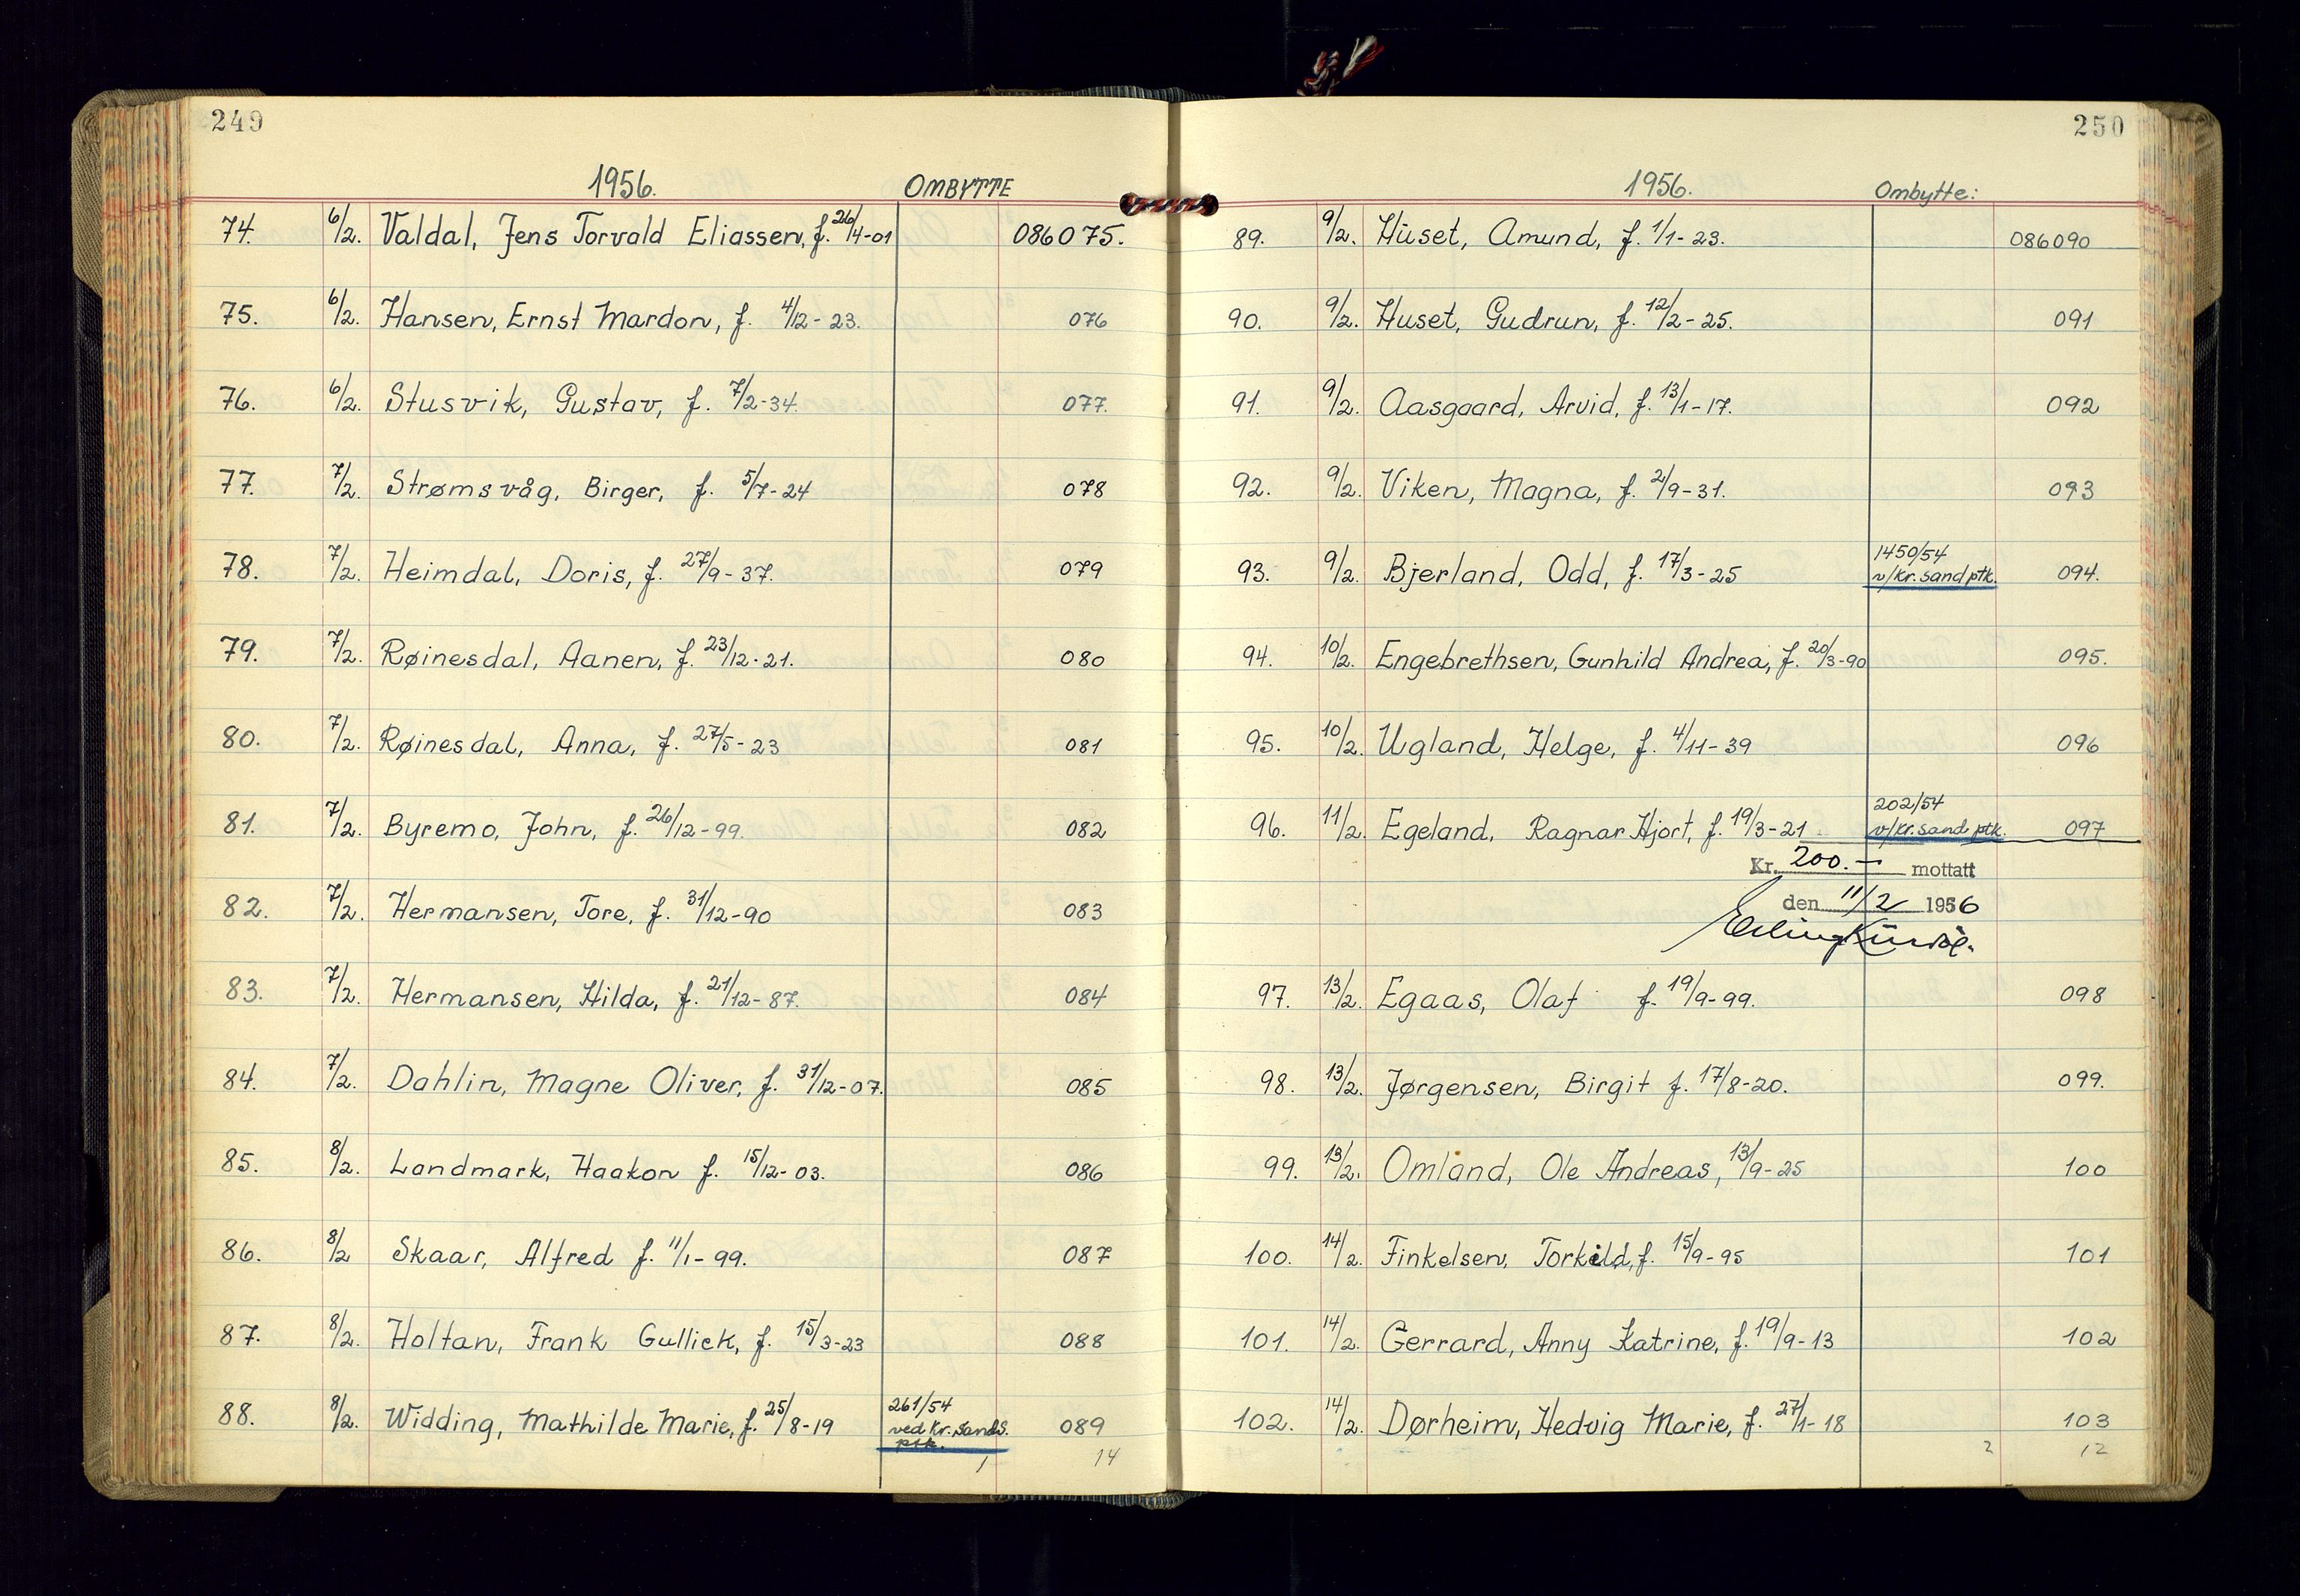 249
1956. OMBYTTE
74. 6/2. Valdal, Jens Torvald Eliassen, f. 26/4-01 086075.
75. 6/2. Hansen, Ernst Mardon, f. 4/12-23. 076
76. 6/2. Stusvik, Gustav, f. 7/2-34. 077.
77. 7/2. Strømsvåg, Birger, f. 5/7-24 078
78. 7/2. Heimdal, Doris, f. 27/9-37. 079
79. 7/2. Røinesdal, Aanen, f. 23/12-21. 080
80. 7/2. Røinesdal, Anna, f. 27/5-23 081
81. 7/2. Byremo, John, f. 26/12-99. 082
82. 7/2. Hermansen, Tore, f. 31/12-90 083
83. 7/2. Hermansen, Hilda, f. 21/12-87. 084
84. 7/2. Dahlin, Magne Oliver, f. 31/12-07. 085
85. 8/2. Landmark, Haakon f. 15/12-03. 086
86. 8/2 Skaar, Alfred f. 11/1-99. 087
87. 8/2. Holtan, Frank Gullick, f. 15/3-23 088
88. 8/2. Widding, Mathilde Marie, f. 25/8-19 261/54 089
ved Kr.sands.
ptk.
1 14
250
1956. Ombytte:
89. 9/2. Huset, Amund, f. 1/1-23. 086090
90. 9/2. Huset, Gudrun, f. 12/2-25. 091
91. 9/2. Aasgaard, Arvid, f. 13/1-17. 092
92. 9/2. Viken, Magna, f. 2/9-31. 093
93. 9/2. Bjerland, Odd, f. 17/3-25 1450/54 094.
v/Kr.sand ptk.
94. 10/2. Engebrethsen, Gunhild Andrea, f. 20/3-90 095.
95. 10/2. Ugland, Helge, f. 4/11-39 096
96. 11/2. Egeland, Ragnar Hjort, f. 19/3-21 202/54 097
v/Kr.sand ptk.
Kr. 200.- mottatt
den 11/2 1956
Erling
97. 13/2. Egaas, Olaf f. 19/9-99. 098
98. 13/2. Jørgensen, Birgit f. 17/8-20. 099.
99. 13/2. Omland, Ole Andreas, 13/9-25 100
100. 14/2. Finkelsen, Torkild, f. 15/9-95 101
101. 14/2. Gerrard, Anny Katrine, f. 19/9-13 102
102. 14/2. Dørheim, Hedvig Marie, f. 27/1-18 103
2 12